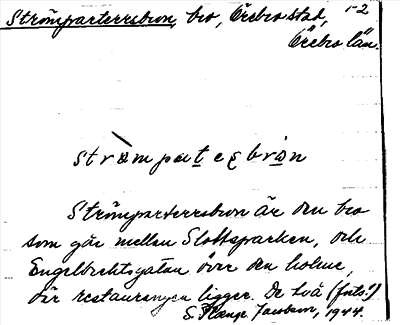 Strömparterrebron, bro, Örebro stad, 1-2
Örebro län.
strömpateȩbròn
Strömparterrebron är den bro
som går mellan Slottsparken, och
Engelbrektsgatan över den holme,
där restaurangen ligger. De två (forts.)
1944.